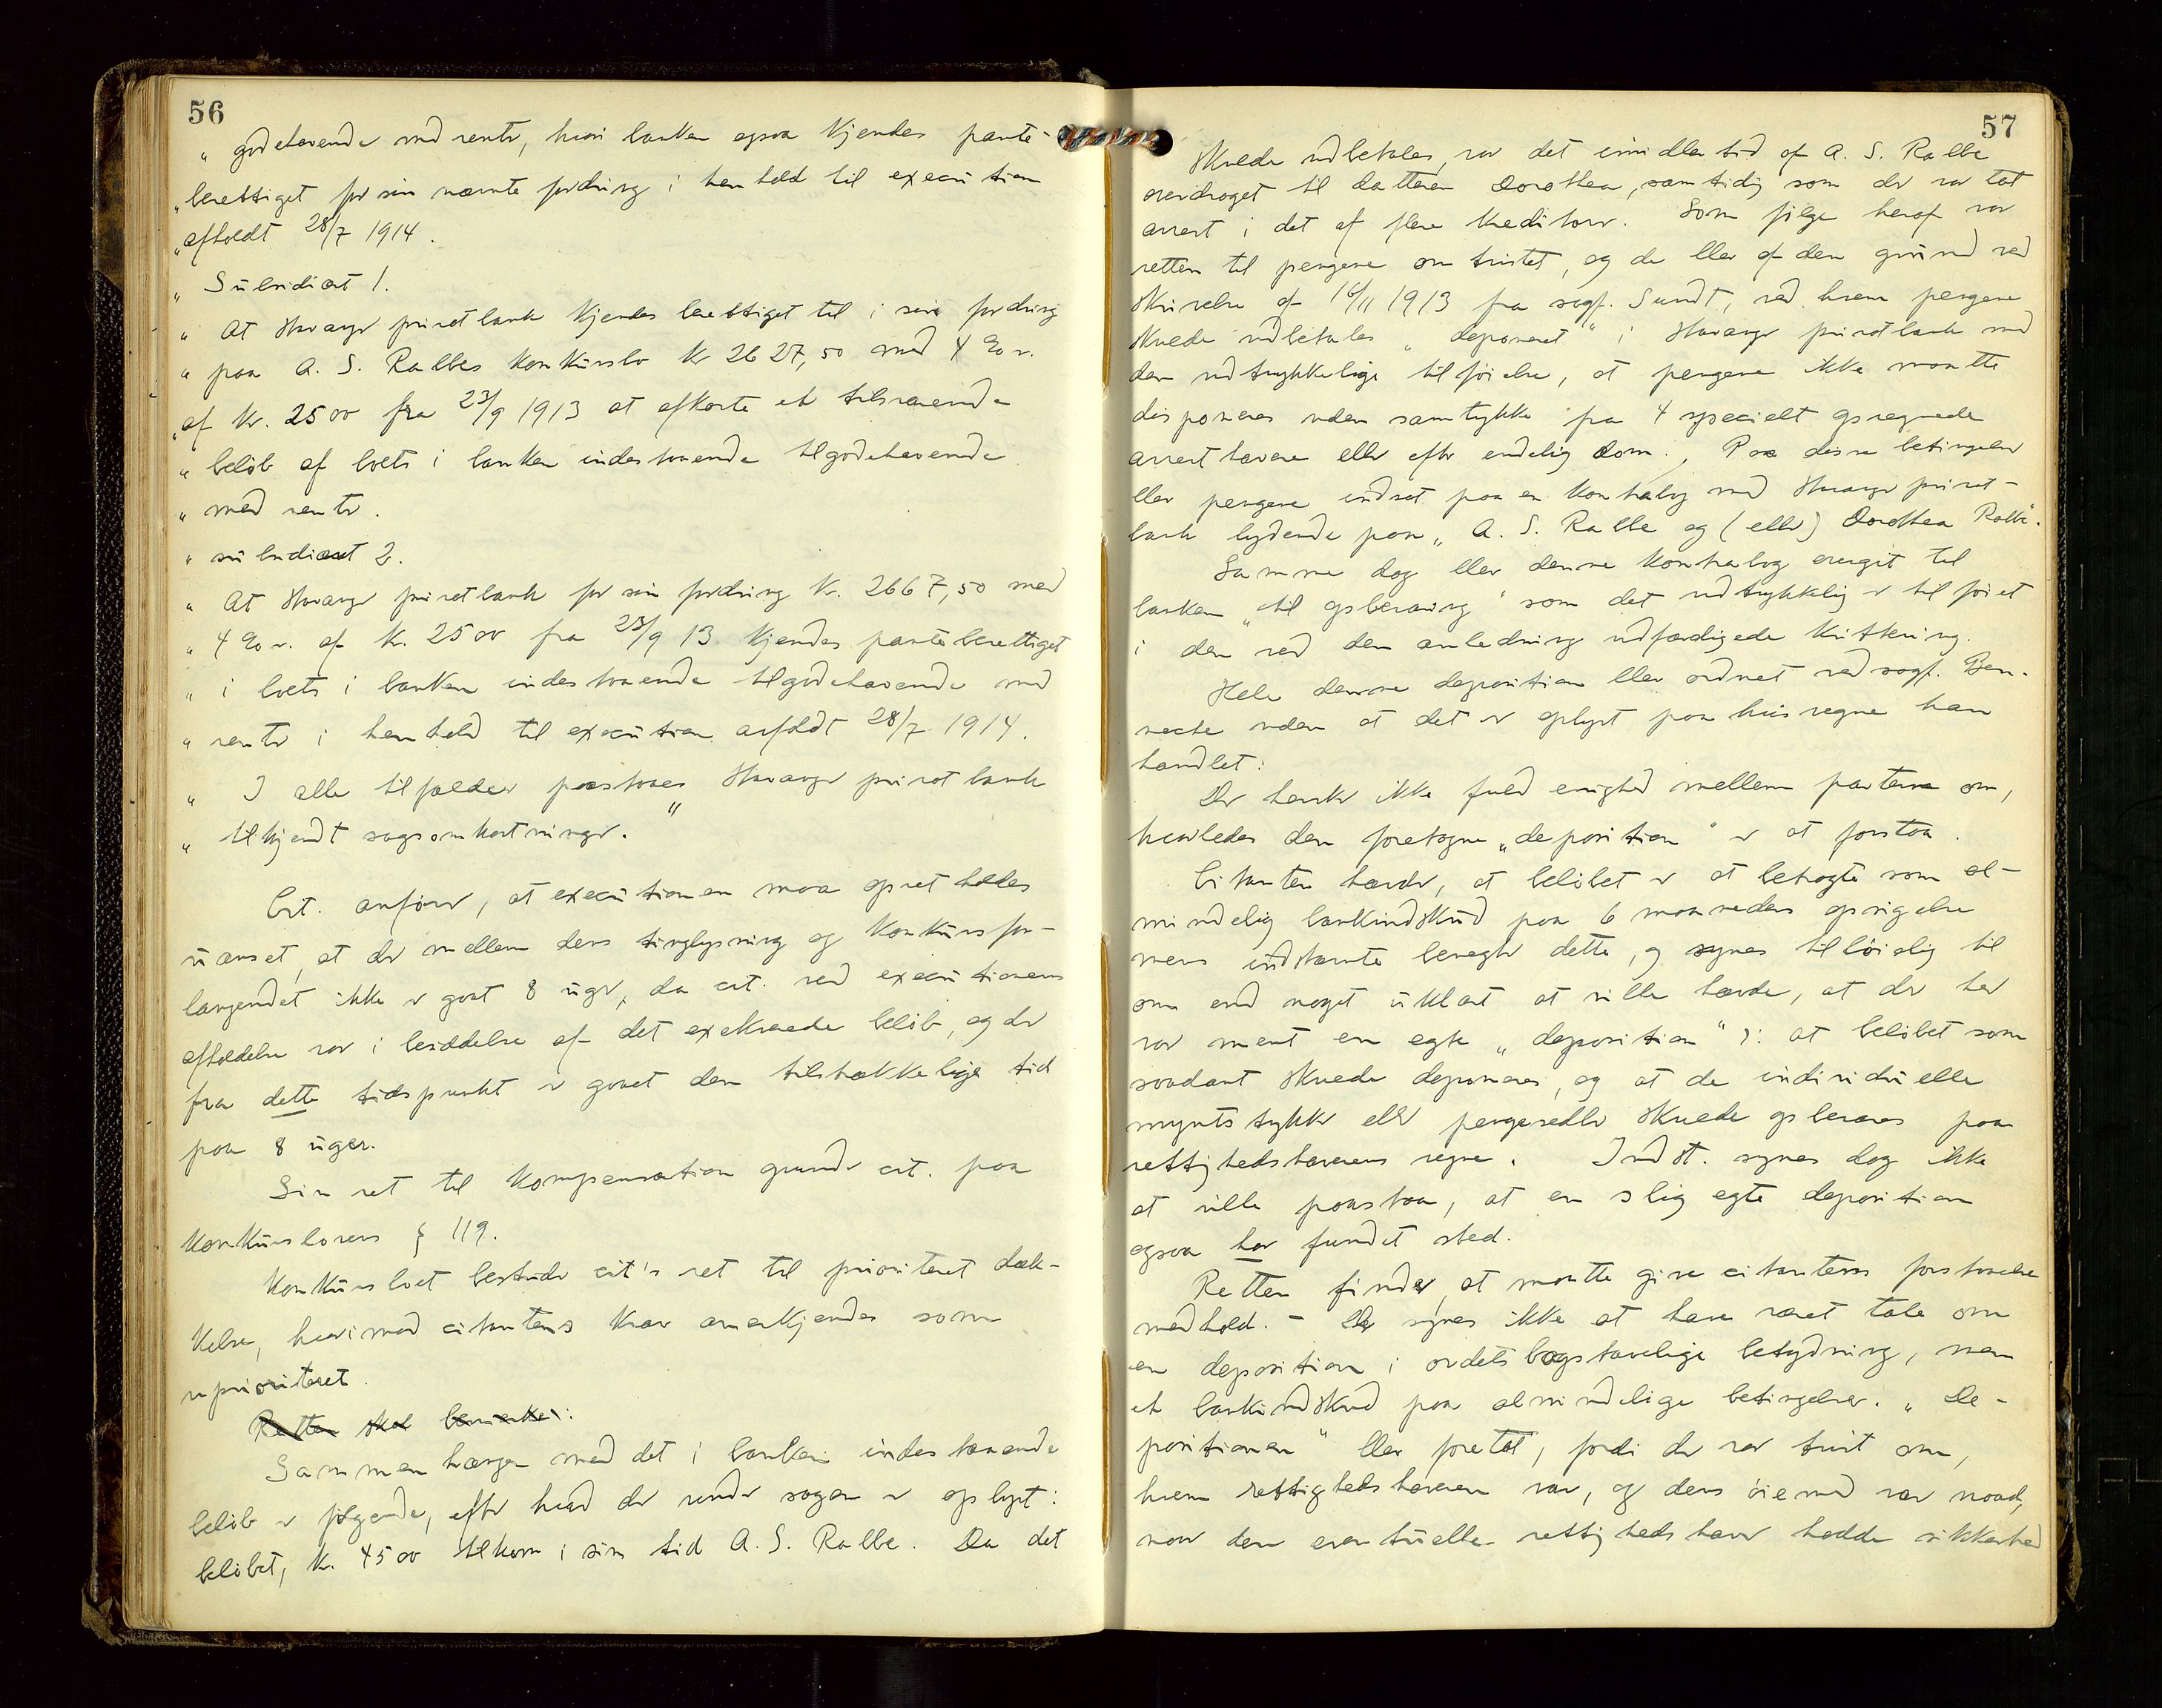 56
" godehavende med rente, hvori banken ogsaa kjendes pante-
" berettiget for sin nævnte fordring i henhold til execution
" afholdt 28/7 1914.
" Subsidiært 1.
" At Stavanger privatbank kjendes berettiget til i sin fordring
" paa A. S. Ralbes konkursbo kr 2627,50 med 4 % r.
" af kr. 2500 fra 23/9 1913 at afkorte et tilsvarende
" beløb af boets i banken indestaaende tilgodehavende
" med renter.
" subsidiært 2.
" At Stavanger privatbank for sin fordring kr. 2667,50 med
" 4 % r. af kr. 2500 fra 23/9 13 kjendes panteberettiget
" i boets i banken indestaaende tilgodehavende med
" renter i henhold til execution afholdt 28/7 1914.
" I alle tilfælder paastaaes Stavanger privatbank
" tilkjendt sagsomkostninger. "
Cit. anfører, at executionen maa opretholdes
uanset, at der mellem dens tinglysning og konkursfor-
langendet ikke er gaat 8 uger, da cit. ved executionens
afholdelse var i besiddelse af det exekverede beløb, og der
fra dette tidspunkt er gaaet den tilstrækkelige tid
paa 8 uger.
Sin ret til kompensation grunder cit. paa
konkurslovens § 119.
Konkursboet bestrider cit's ret til prioriteret dæk-
kelse, hvorimod citantens krav anerkjendes som
uprioriteret.
Retten skal bemærke:
Sammenhængen med det i banken indestaaende
beløb er følgende, efter hvad der under sagen er oplyst:
beløbet, kr. 4500 tilkom i sin tid A. S. Ralbe. Da det
57
skulde udbetales, var det imidlertid af A. S. Ralbe
overdraget til datteren Dorothea, samtidig som der var tat
arrest i det af flere kreditorer. Som følge heraf var
retten til pengene omtvistet, og de blev af den grund ved
skrivelse af 18/11 1913 fra sagf. Sundt, ved hvem pengene
skulde udbetales " deponeret " i Stavanger privatbank med
den udtrykkelige tilføielse, at pengene ikke maatte
disponeres uden samtykke fra 4 specielt opregnede
arresthavere eller efter endelig dom. Paa disse betingelser
blev pengene indsat paa en kontrabog med Stavanger privat-
bank lydende paa " A. S. Ralbe og (eller) Dorothea Ralbe".
Samme dag blev denne kontrabog overgit til
banken " til opbevaring " som det udtrykkelig er tilføiet
i den ved den anledning udfærdigede kvittering.
Hele denne deposition blev ordnet ved sagf. Ben-
neche uden at det er oplyst paa hvis vegne han
handlet:
Der hersker ikke fuld enighed mellem parterne om,
hvorledes den foretagne " deposition " er at forstaa.
Citanten hævder, at beløbet er at betragte som al-
mindelig bankindskud paa 6 maaneders opsigelse
mens indstævnte benegter dette, og synes tilbøielig til
om end noget uklart at ville hævde, at der her
var ment en egte " deposition " ɔ: at beløbet som
saadant skulde deponeres, og at de individuelle
myntstykker eller pengesedler skulde opbevares paa
rettighedshaverens vegne. Indst. synes dog ikke
at ville paastaa, at en slig egte deposition
ogsaa har fundet sted.
Retten finder, at maatte give citantens forstaaelse
medhold. - Der synes ikke at have været tale om
en deposition i ordets bogstavelige betydning, men
et bankindskud paa almindelige betingelser. " De-
positionen " blev foretat, fordi der var tvist om,
hvem rettighedshaveren var, og dens øiemed var naad,
naar den eventuelle rettighedshaver hadde sikkerhed